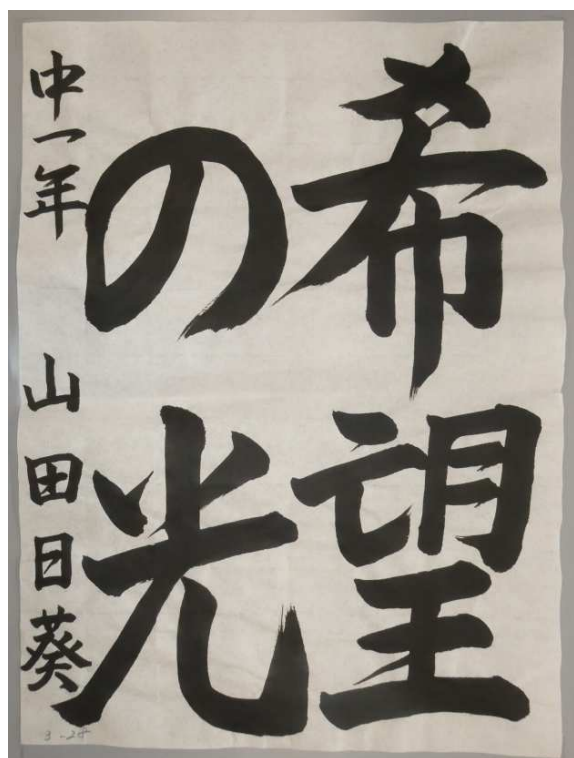 希望
の光
中一年 山田日葵
3-25